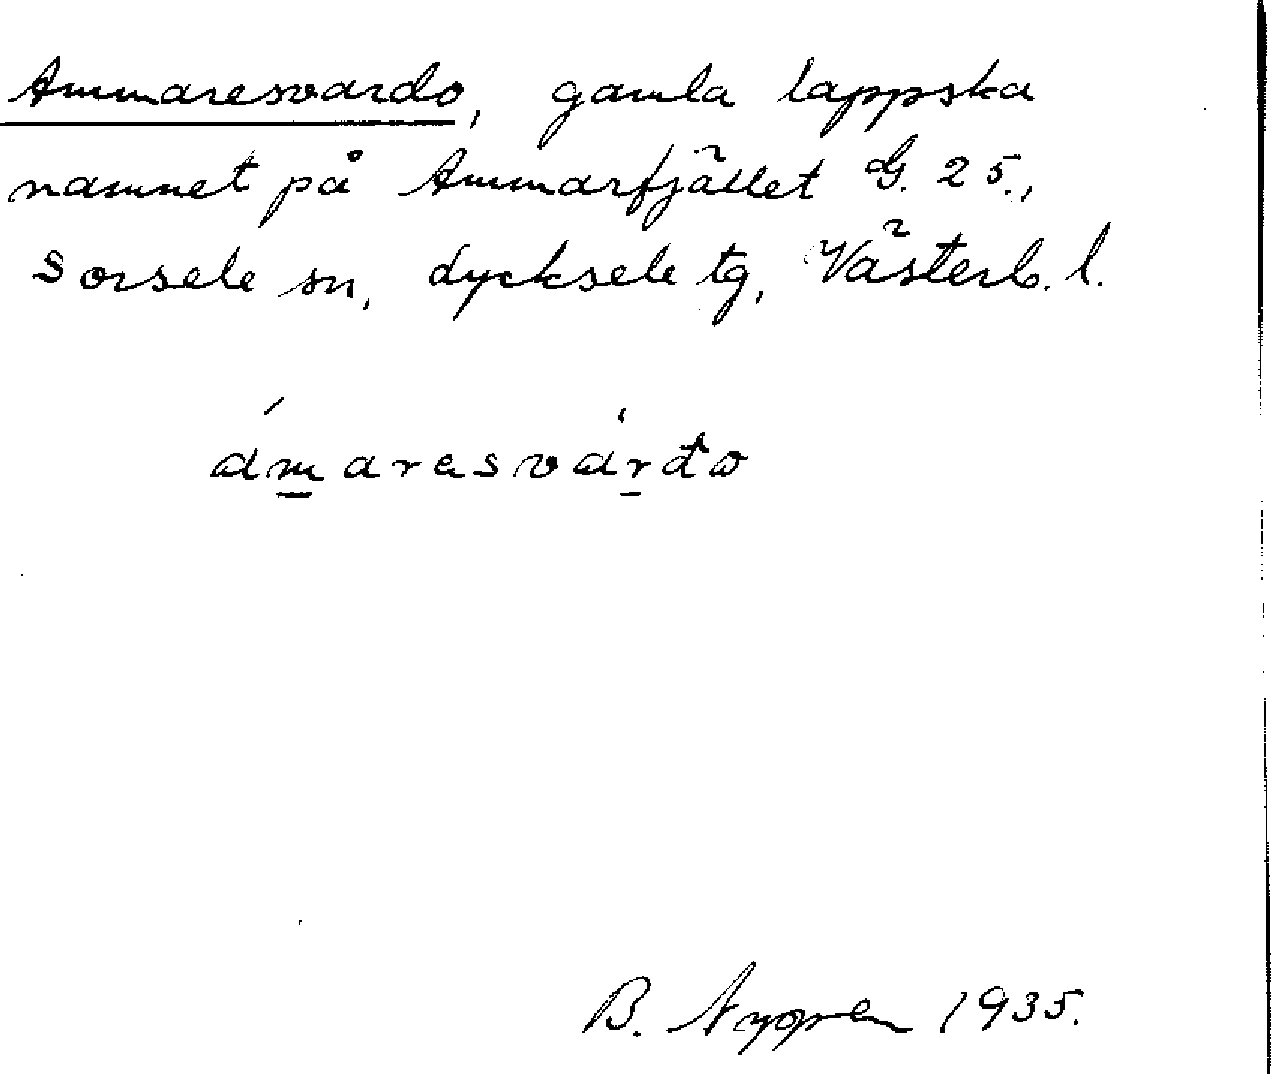 Ammaresvardo, gamla lappska
namnet på Ammarfjället G. 25.,
Sorsele sn, Lycksele tg, Västerb. l.
ámaresvárdo
B. Nyopen 1935.